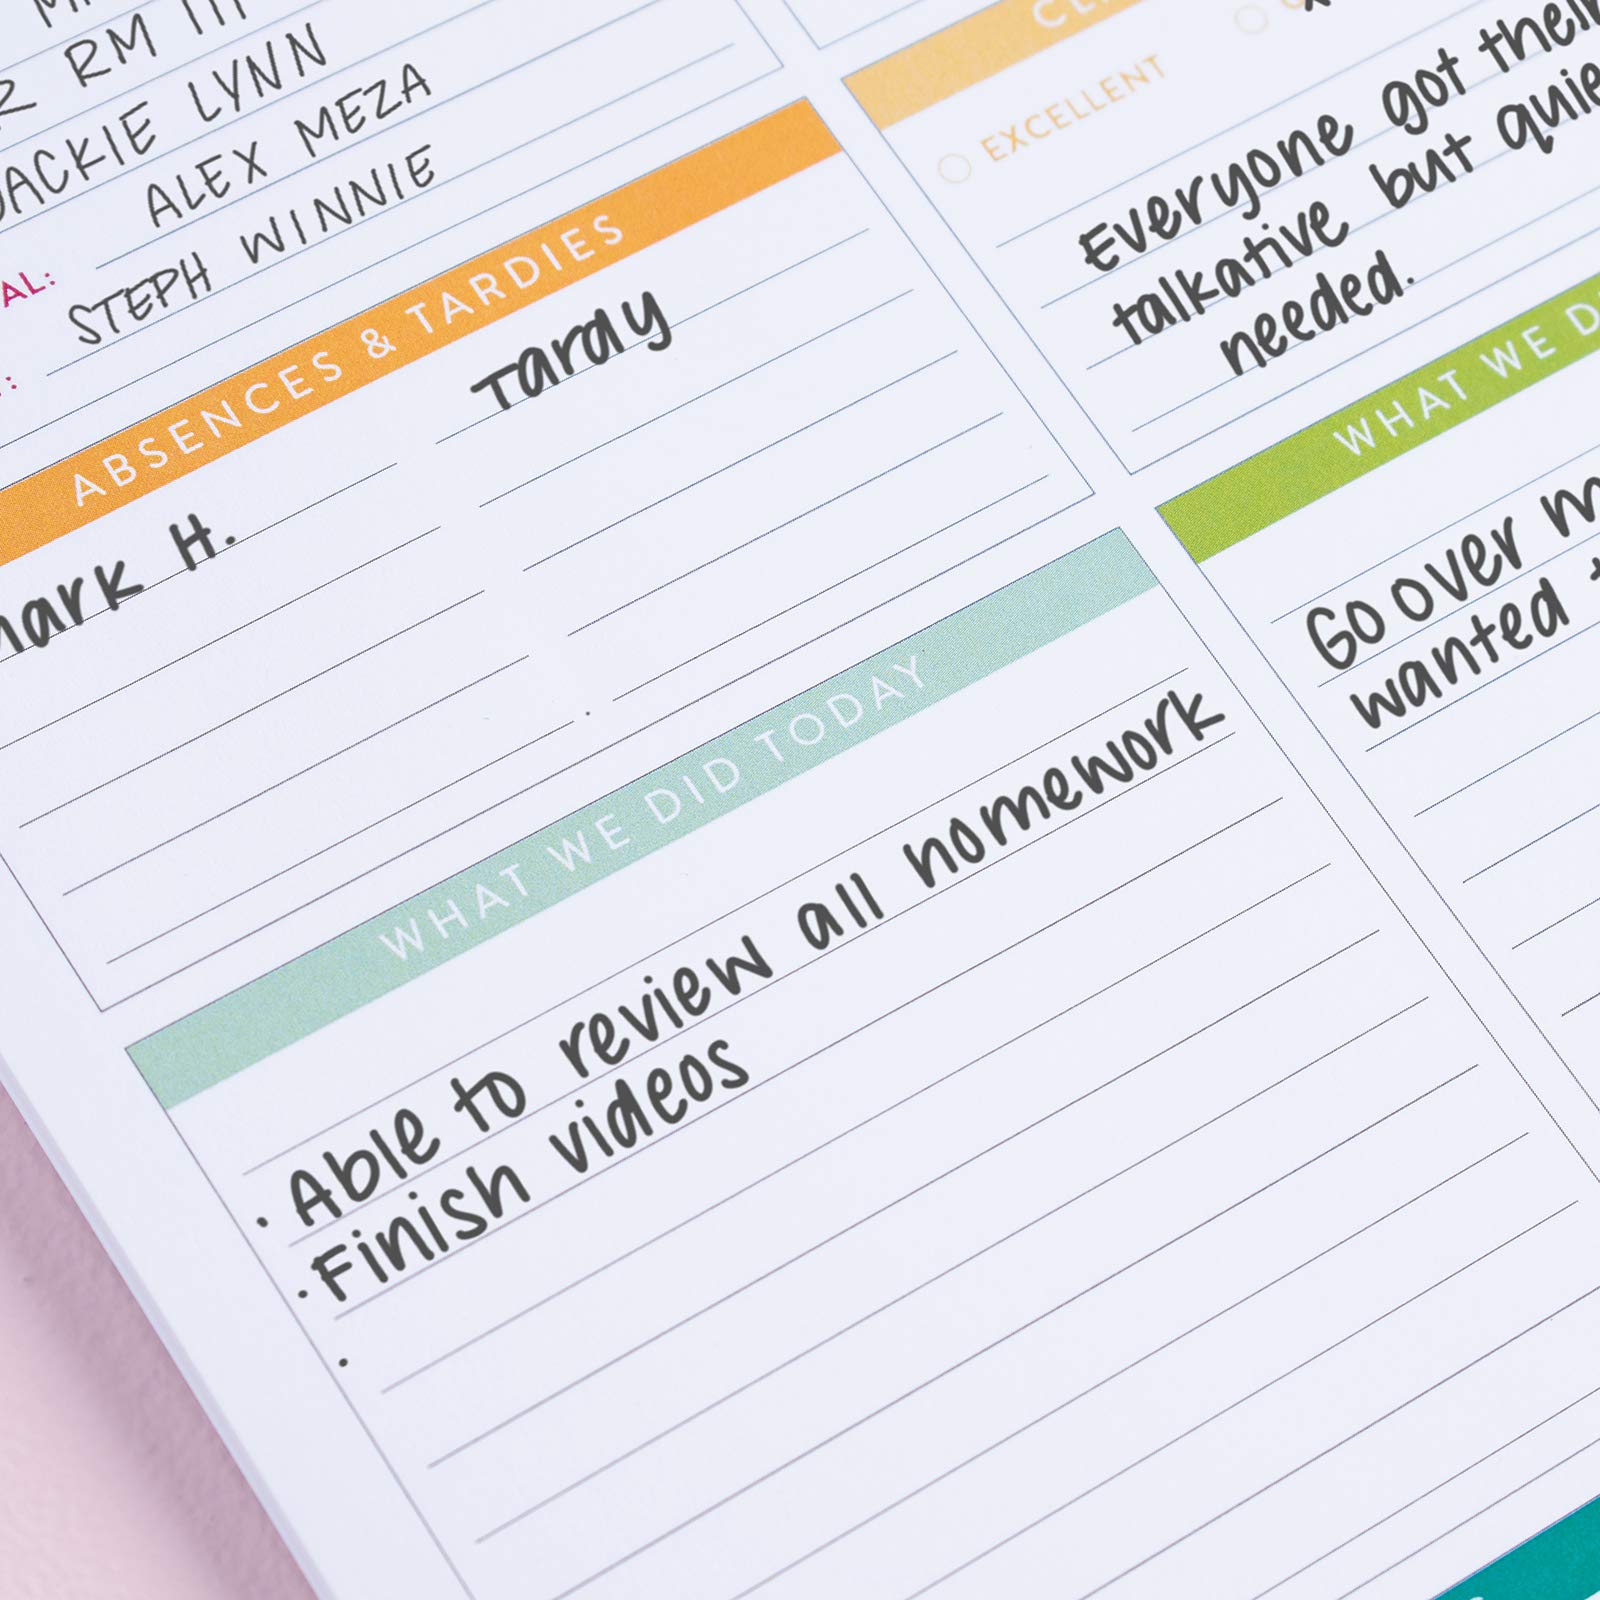 RM 111
JACKIE LYNN
ALEX MEZA
STEPH WINNIE
ABSENCES & TARDIES
Mark H.
Tardy
WHAT WE DID TODAY
· Able to review all homework
· Finish videos
·
EXCELLENT
Everyone got their
talkative but
needed.
WHAT WE
Go over
wanted